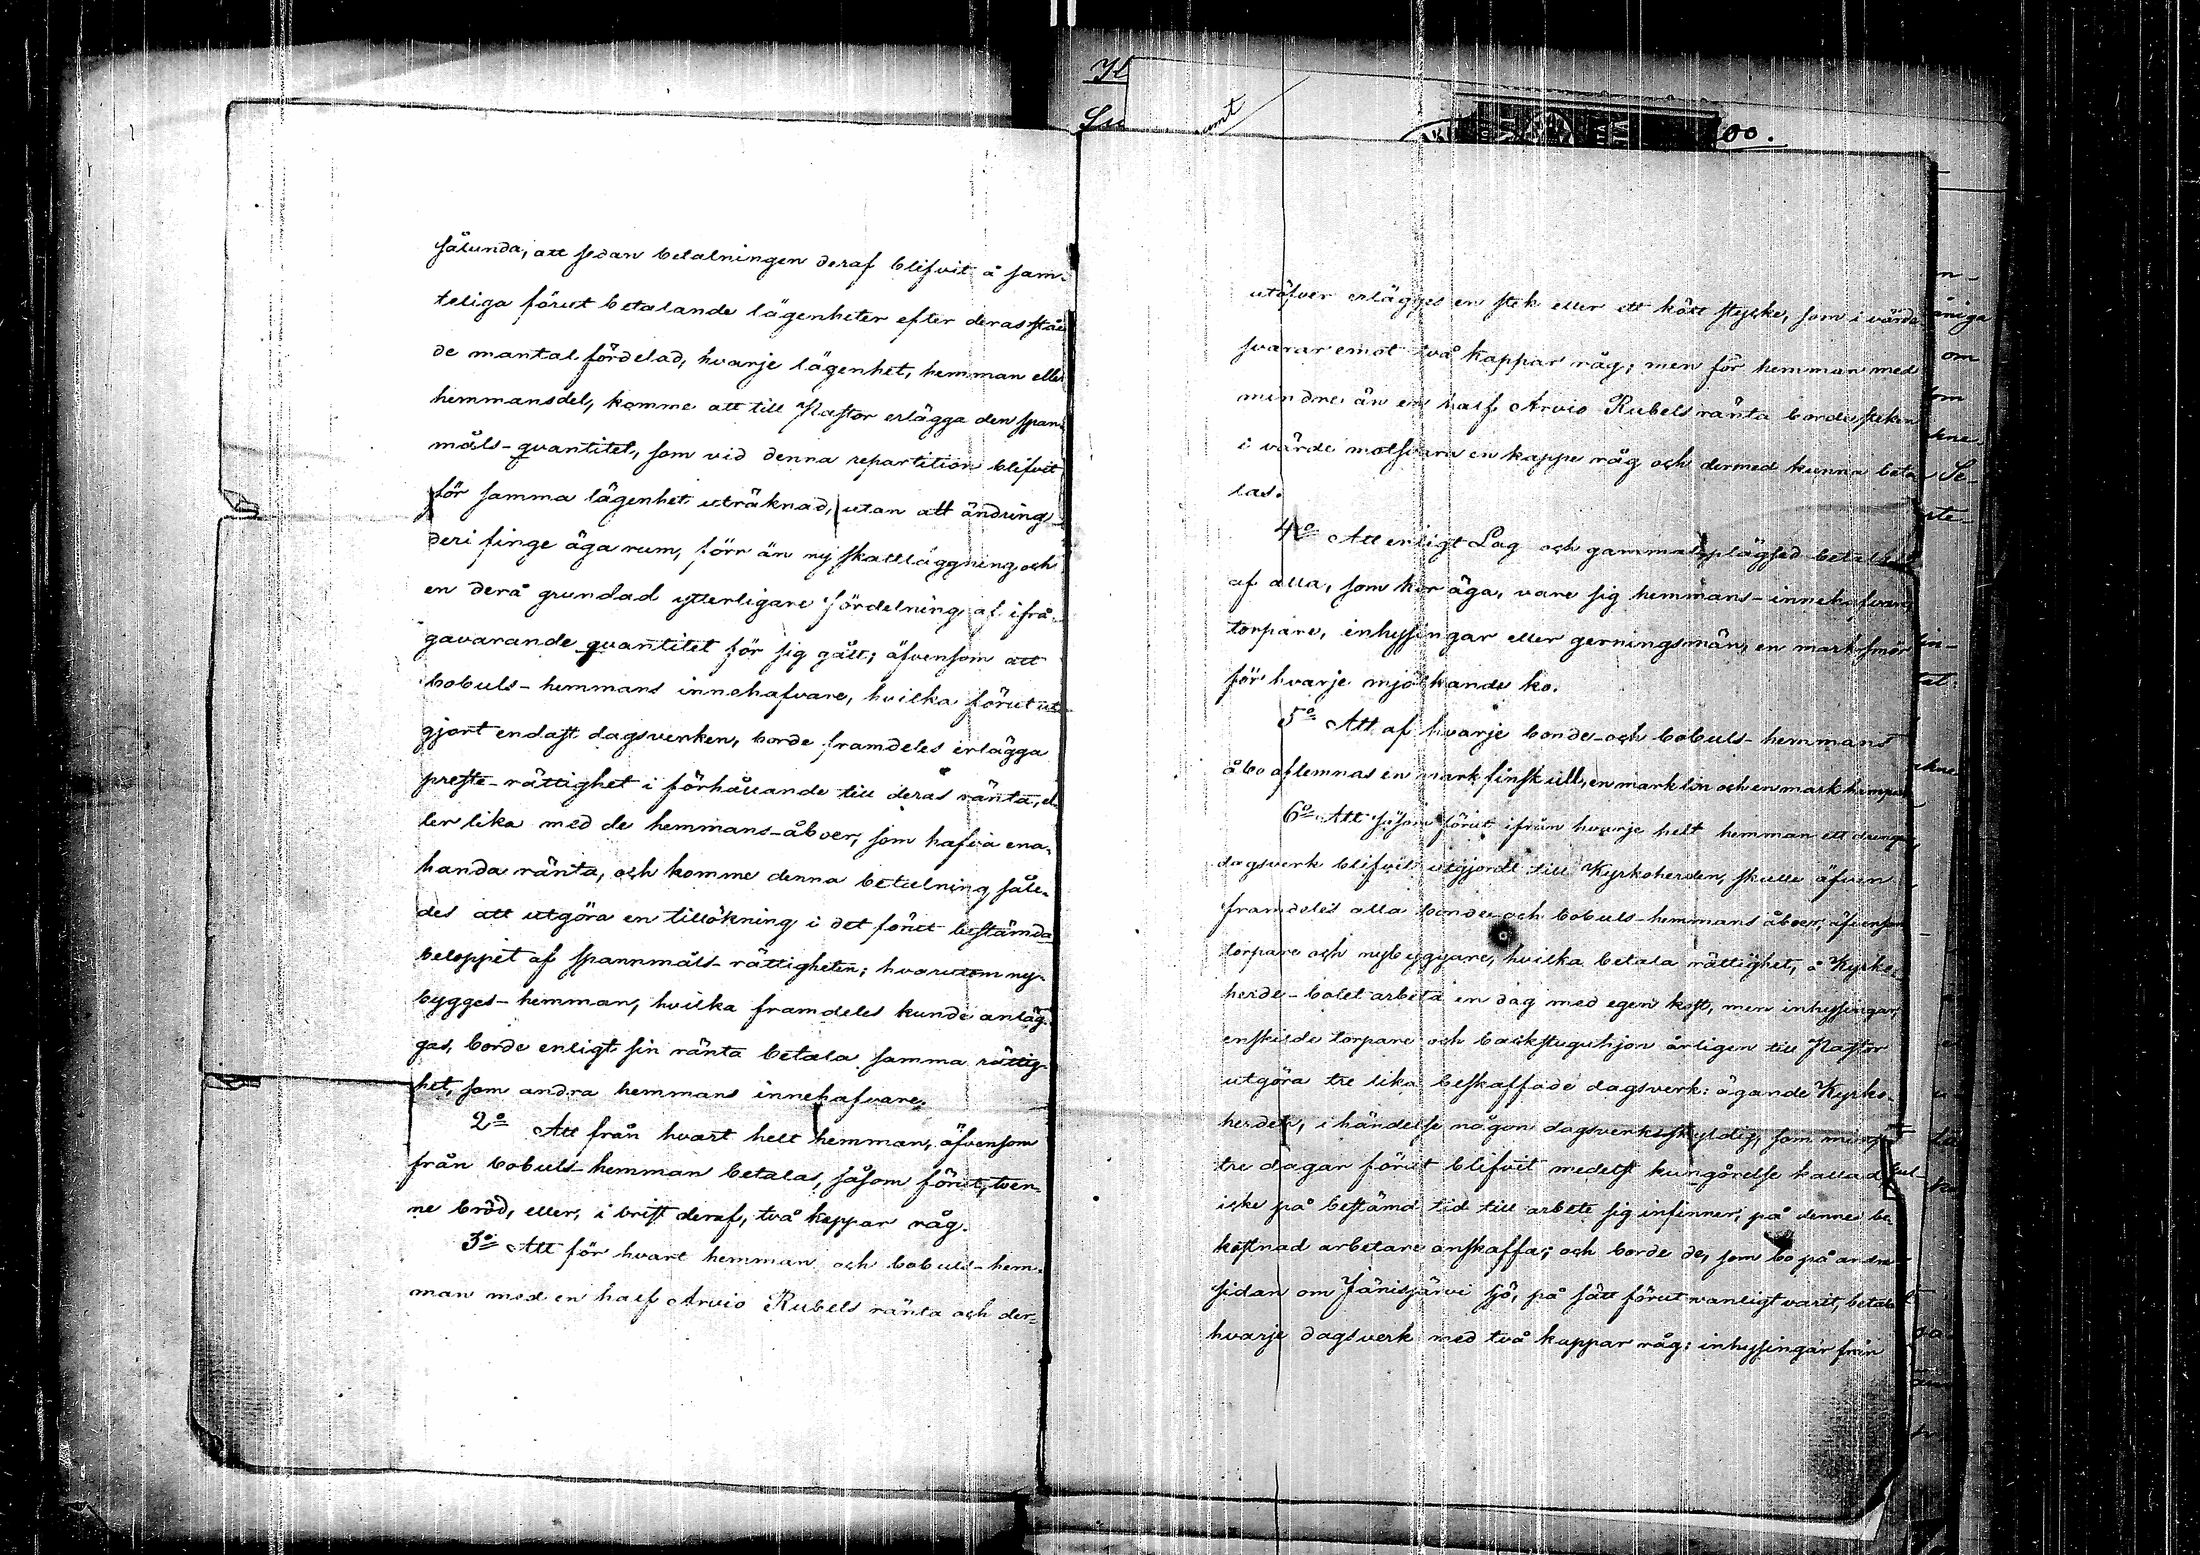 sålunda, att sedan betalningen deraf blifvit å sam-
teliga förut betalande lägenheter efter deras ståen
de mantal fördelad, hvarje lägenhet, hemman eller
hemmansdel, komme att till Pastor erlägga den span-
måls-qvantitet, som vid denna repartition blifvit
för samma lägenhet uträknad, utan att ändring
deri finge äga rum, förr än ny skattläggning och
en derå grundad ytterligare fördelning af ifrå-
gavarande qvantitet för sig gått; äfvensom att
bobuls-hemmans innehafvare, hvilka förut ut-
gjort endast dagsverken, borde framdeles erlägga
preste-rättighet i förhållande till deras ränta, el-
ler lika med de hemmans-åboer, som hafva ena-
handa ränta, och komme denna betalning såle-
des att utgöra en tillökning i det förut bestämda
beloppet af spannmåls-rättigheten; hvarutom ny-
bygges-hemman, hvilka framdeles kunde anläg-
gas, borde enligt sin ränta betala samma rättig-
het, som andra hemmans innehafvare.
2:o Att från hvart helt hemman, äfvensom
från bobuls-hemman betalas, såsom förut, tven-
ne bröd, eller, i brist deraf, två kappar råg.
3:o Att för hvart hemman och bobuls-hem-
man med en half Arvio Rubels ränta och der-
utöfver erlägges en stek eller ett kött stycke, som i värde
svarar emot två kappar råg; men för hemman med
mindre än en half Arvio Rubels ränta borde steken
i värde motsvara en kappe råg och dermed kunna beta-
las.
4:o Att enligt Lag och gammal plägsed betalas
af alla, som kor äga, vare sig hemmans-innehafvare,
torpare, inhysingar eller gerningsmän, en mark smör
för hvarje mjölkande ko.
5:o Att af hvarje bonde- och bobuls-hemmans
åbo aflemnas en mark finsk ull, en mark lin och en mark hampa.
6:o Att såsom förut ifrån hvarje helt hemman ett drengs
dagsverk blifvit utgjordt till Kyrkoherden, skulle äfven
framdeles alla bonde- och bobuls-hemmans åboer, äfvensom
torpare och nybyggare, hvilka betala rättighet, å Kyrko-
herde-bolet arbeta en dag med egen kost, men inhysingar,
enskilde torpare och backstuguhjon årligen till Pastor
utgöra tre lika beskaffade dagsverk: ägande Kyrko-
herden, i händelse någon dagsverksskyldig, som minst
tre dagar förut blifvit medelst kungörelse kallad,
icke på bestämd tid till arbete sig infinner, på dennes be-
kostnad arbetare anskaffa; och borde de, som bo på andra
sidan om Jänisjärvi sjö, på sätt förut vanligt varit, betala
hvarje dagsverk med två kappar råg: inhysingar från